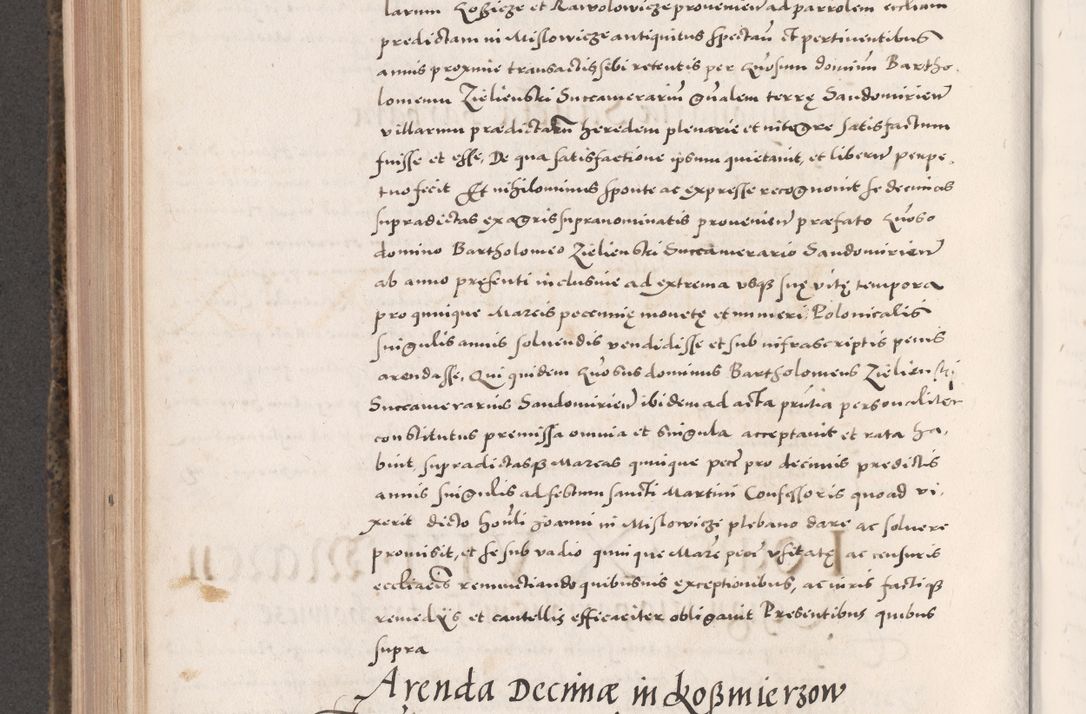 larum Kozicze et Rawolowicze provenien ad parrolem eccliam
predictam in Mislowicze antiquitus spectan et pertinentibus
annis proxime transactis sibi retentis per Gnosum dominum Bartho,
lomeum Zielienski Succamerarium gnalem terrę Sandomirien
villarum prædictarum heredem plenarie et integre satisfactum
fuisse et esse, De qua satisfactione ipsum quietavit, et liberum perpe,
tuo fecit Et nihilominus sponte ac expresse recognovit se decimas
supradictas ex agris supranominatis provenien præfato Gnoso
domino Bartholomeo Zielienski Succamerario Sandomirien
ab anno presenti inclusive ad extrema usque suę vitę tempora
pro quinque Marcis pecunię monetę et numeri Polonicalis
singulis annis solvendis vendidisse et sub infrascriptis penis
arendasse, Qui quidem Gnosus dominus Bartholomeus Zielienski
Succamerarius Sandomirien ibidem ad acta prntia personaliter
constitutus premissa omnia et singula acceptavit et rata ha,
buit, supradictasque Marcas quinque pecc pro decimis predictis
annis singulis ad festum sancti Martini Confessoris quoad vi,
xerit dicto honli Joanni in Mislowicze plebano dare ac solvere
promisit, et se sub vadio quinque Marc pecc usitatę ac censuris
eccliacis renunctiando quibusuis exceptionibus, ac iuris factique
remedijs et cautellis efficaciter obligavit Presentibus quibus
supra
Arenda Decimæ in Koßmierzow